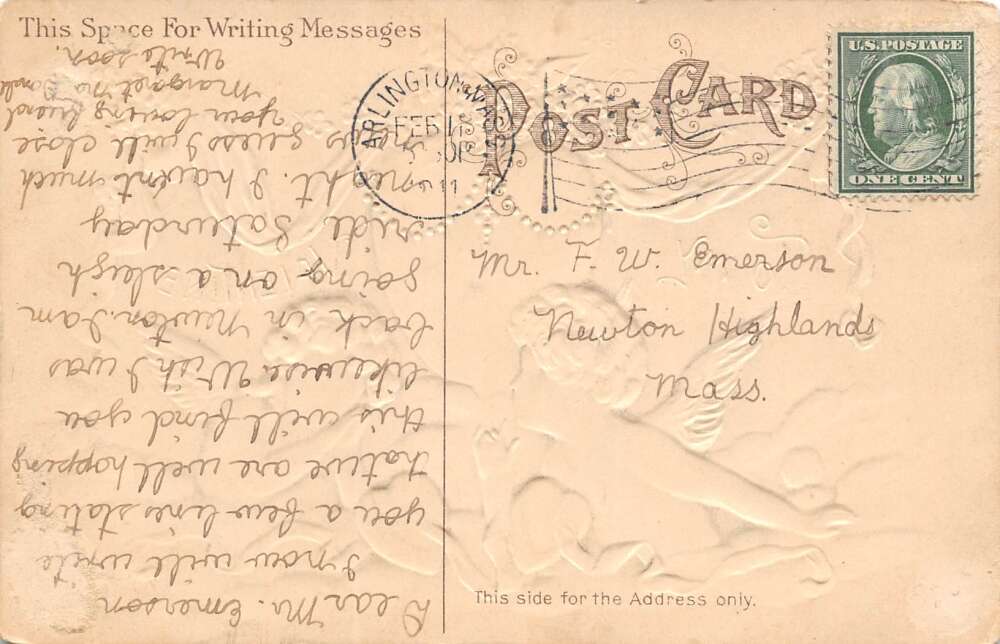 This Space For Writing Messages
POST CARD
U.S. POSTAGE
ONE CENT
ARLINGTON, MASS.
FEB 11
1911
Mr. F. W. Emerson
Newton Highlands
Mass.
This side for the Address only.
Dear Mr. Emerson
I now will write
you a few lines stating
that we are well hopping
this will find you
likewise Wish I was
back in Newton. I am
going on a sleigh
ride Saturday
night. I havent much
news guess I will close
your loving friend
Margaret
Write soon.